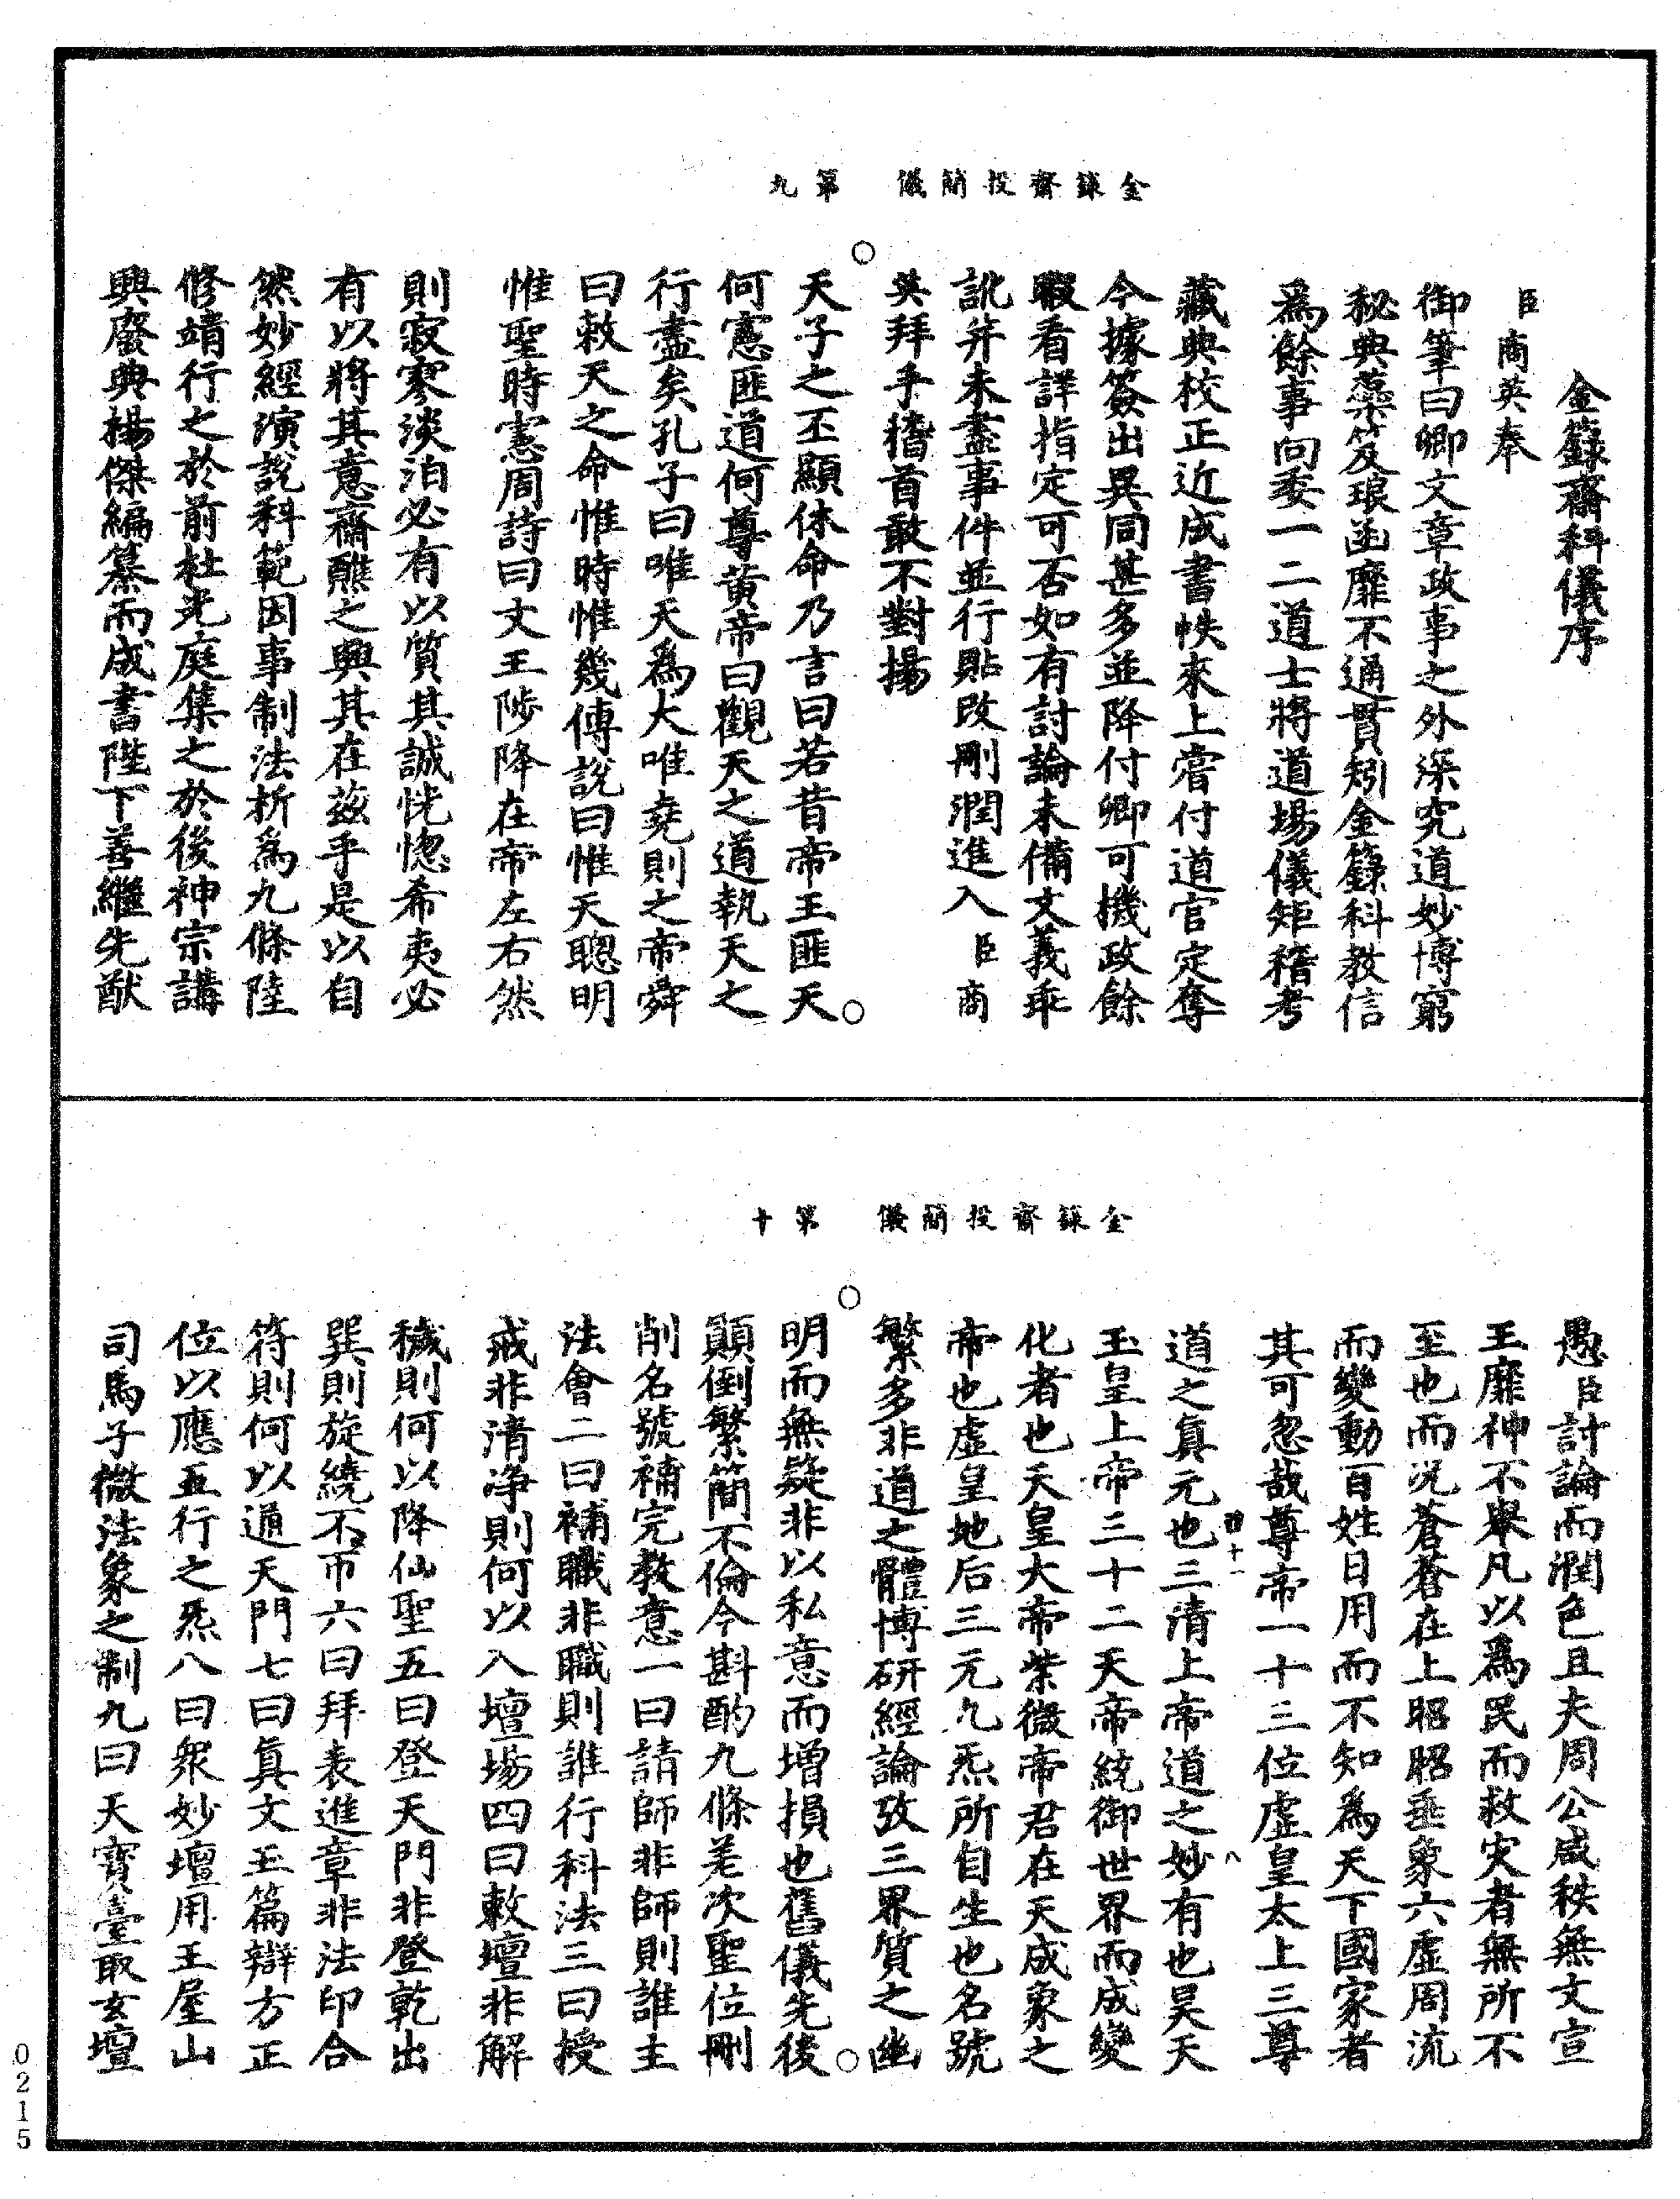 金籙齋投簡儀　第九
金籙齋科儀序
臣商英奉
御筆曰卿文章政事之外深究道妙博窮
秘典蘂笈琅函靡不通貫矧金籙科教信
爲餘事向委一二道士將道場儀矩稽考
藏典校正近成書帙來上嘗付道官定奪
今據簽出異同甚多並降付卿可機政餘
暇看詳指定可否如有討論未備文義乖
訛并未盡事件並行貼改刪潤進入臣商
英拜手稽首敢不對揚
天子之丕顯休命乃言曰若昔帝王匪天
何憲匪道何尊黄帝曰觀天之道執天之
行盡矣孔子曰唯天爲大唯堯則之帝舜
曰敕天之命惟時惟幾傅說曰惟天聰明
惟聖時憲周詩曰文王陟降在帝左右然
則寂寥淡泊必有以質其誠恍惚希夷必
有以將其意齋醮之興其在茲乎是以自
然妙經演說科範因事制法析爲九條陸
修靖行之於前杜光庭集之於後神宗講
興廢典楊傑編纂而成書陛下善繼先猷
金籙齋投簡儀　第十
愚臣討論而潤色且夫周公咸秩無文宣
王靡神不舉凡以爲民而救灾者無所不
至也而况蒼蒼在上昭昭垂象六虛周流
而變動百姓日用而不知爲天下國家者
其可忽哉尊帝一十三位虛皇太上三尊
道之真元也三清上帝道之妙有也昊天
玉皇上帝三十二天帝統御世界而成變
化者也天皇大帝紫微帝君在天成象之
帝也虛皇地后三元九炁所自生也名號
繁多非道之體博研經論攷三界質之幽
明而無疑非以私意而增損也舊儀先後
顛倒繁簡不倫今斟酌九條差次聖位刪
削名號補完教意一曰請師非師則誰主
法會二曰補職非職則誰行科法三曰授
戒非清淨則何以入壇場四曰敕壇非解
穢則何以降仙聖五曰登天門非登乾出
巽則旋繞不帀六曰拜表進章非法印合
符則何以通天門七曰真文玉篇辯方正
位以應五行之炁八曰衆妙壇用王屋山
司馬子微法象之制九曰天寶臺取玄壇
0215